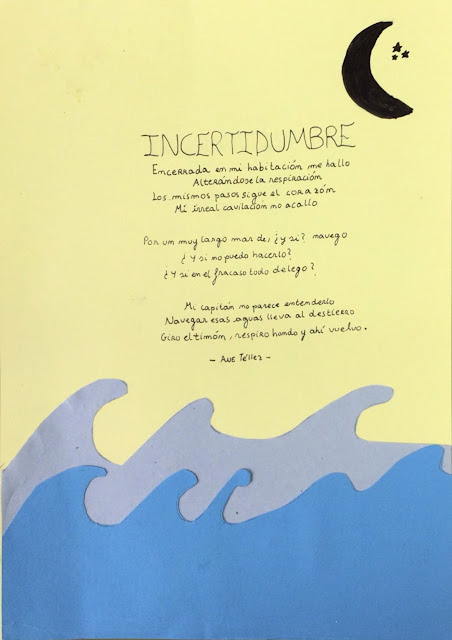 INCERTIDUMBRE
Encerrada en mi habitación me hallo
Alterándose la respiración
Los mismos pasos sigue el corazón
Mi irreal cavilación no acallo
Por un muy largo mar de, ¿y si? navego
¿Y si no puedo hacerlo?
¿Y si en el fracaso todo delego?
Mi capitán no parece entenderlo
Navegar esas aguas lleva al destierro
Giro el timón, respiro hondo y ahí vuelvo.
- Ane Téllez -